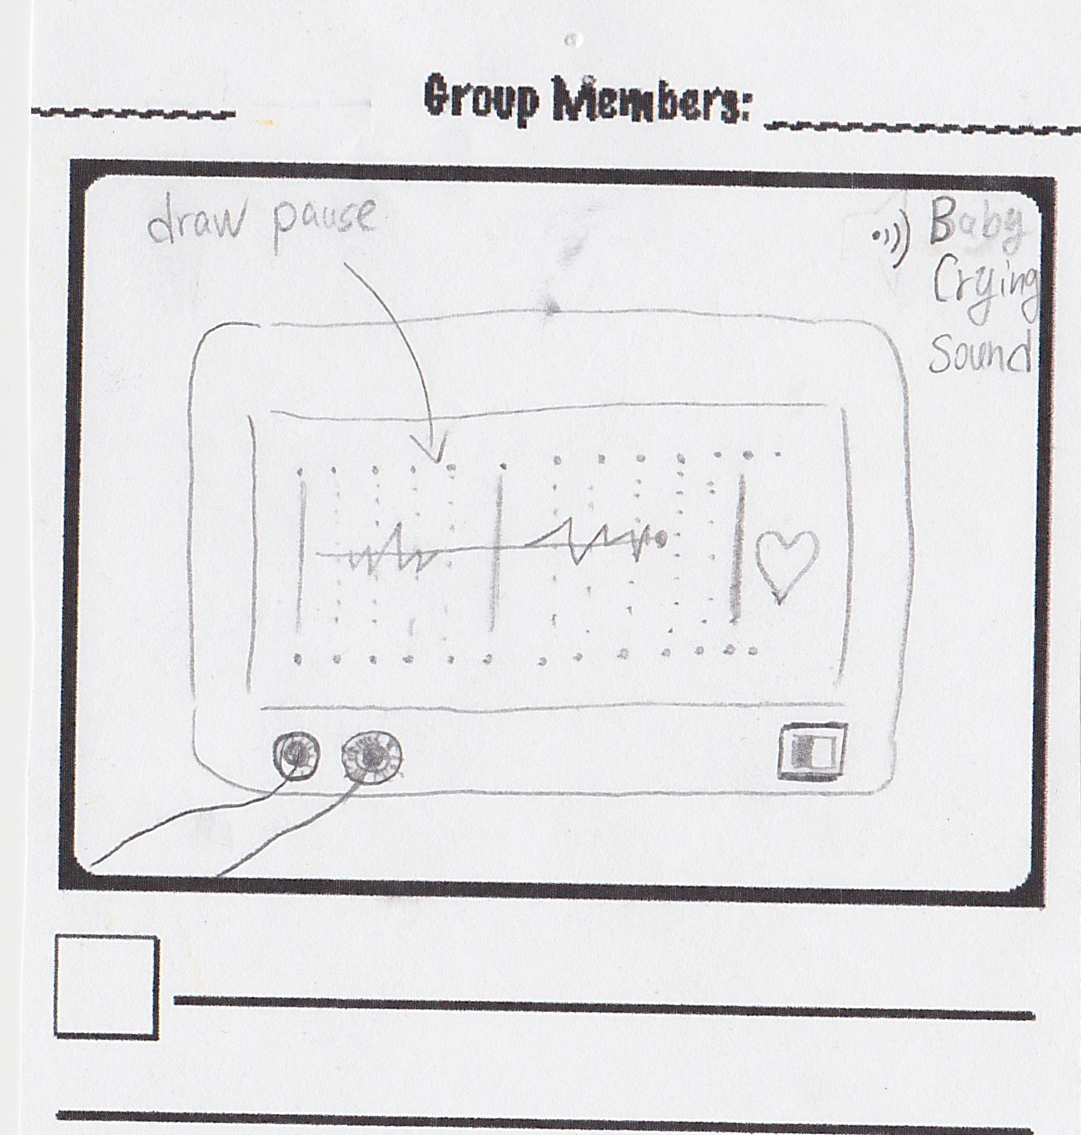 Group Members:
draw pause
Baby
Crying
Sound